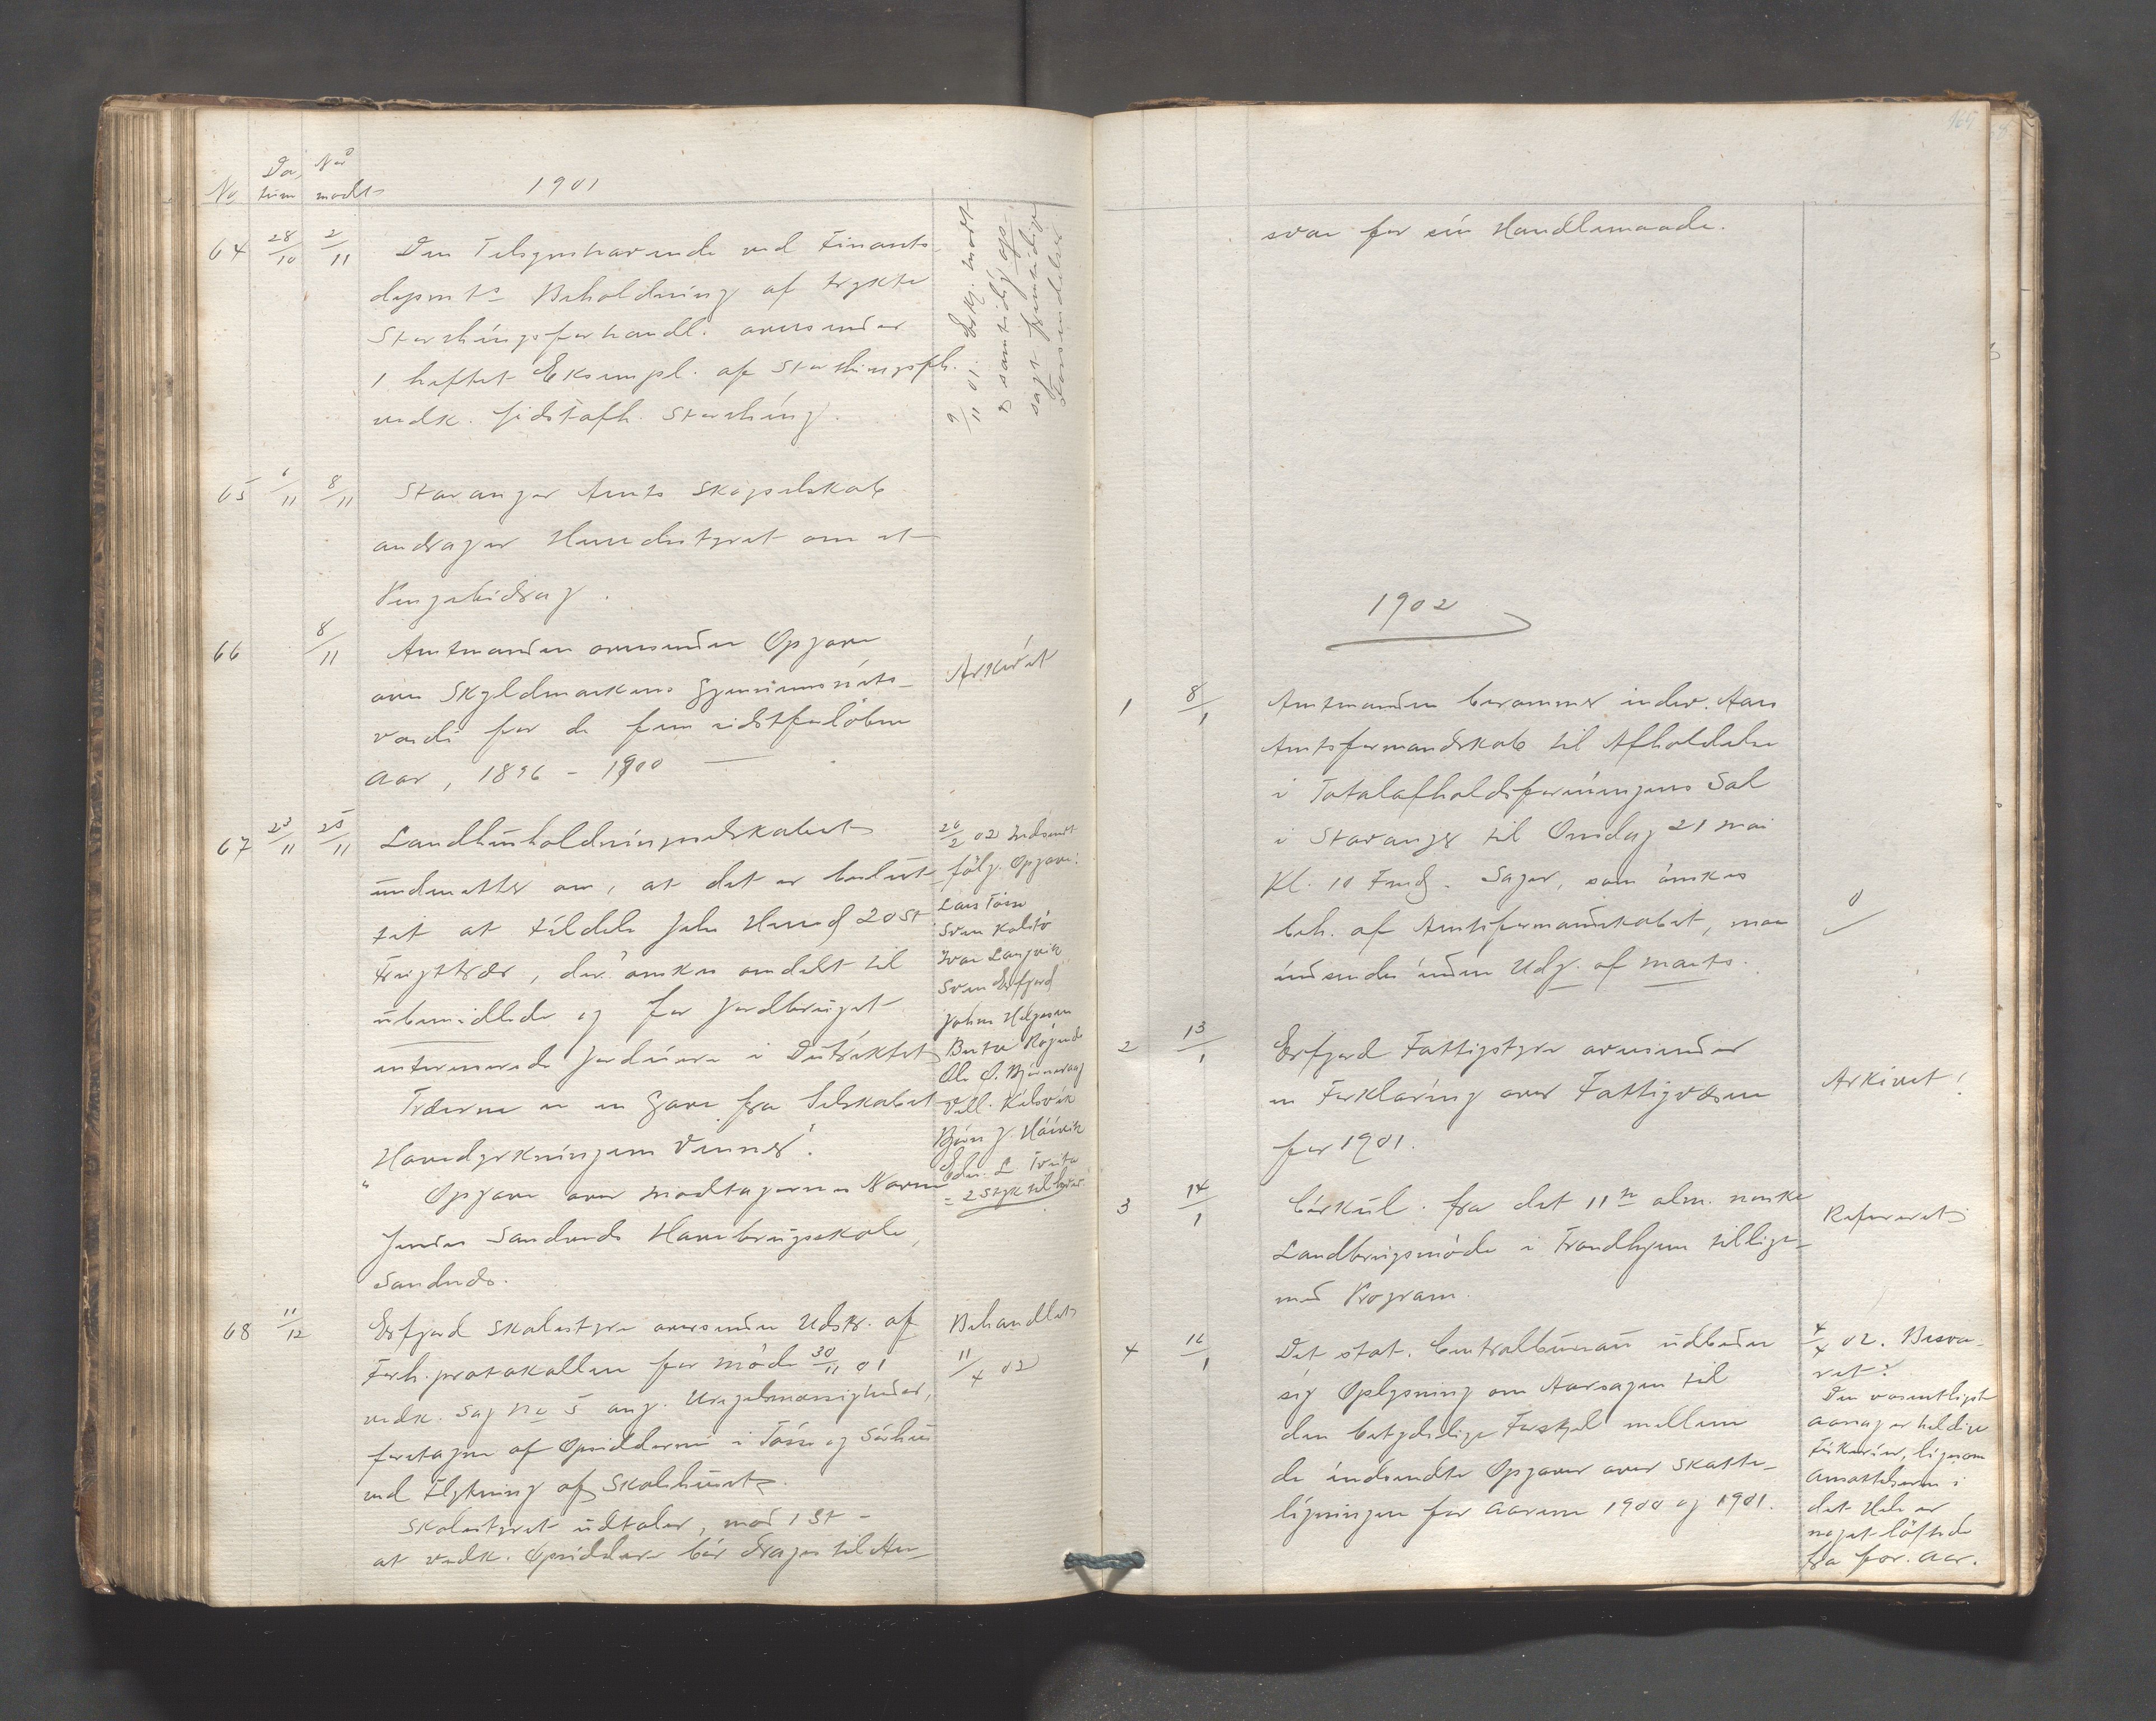 No Da, tum Når modt 1901
64 28/10 2/11 Den Tilsynshavende ved Finants-
depmts Beholdning af trykte
Storthingsforhandl. oversender
1 heftet Eksempl. af Storthingsfh.
vedk. sidstafh. Storthing.
9/11 01. Erkj. modt
65 /11 8/11 Stavanger Amts Skogselskab
andrager Herredsstyret om et
Pengebidrag.
66 8/11 Amtmanden oversender Opgave
over Skyldmarkens Gjennemsnits-
værdi for de fem sidstforløbne
Aar, 1896 - 1900
Arkivet
67 23/11 25/11 Landhusholdningsselskabet
underretter om, at det er beslut-
tet at tildele Jels Herred 20 St
Frugttrær, der ønskes omdelt til
ubemidlede og for Jordbruget
interesserede Jordeiere i Distriktet
Trærne er en Gave fra Selskabet
"Havedyrkningens Venner".
" Opgave over Modtagernes Navne
sendes Sandneds Havebrugsskole,
Sandneds.
26/2 02 Indsendt
følg. Opgave:
Lars Tøsse
Sven Kaltø
Ivar Langvik
Sven Erfjord
John Helgesen
Ole O.
Vill. Kilevik
Bjørn J.
L. Tveita
= 2 Styk til hver
68 11/12 Erfjord Skolestyre oversender Udskr. af
Forh.protokollen for møde 30/11 01
vedk. Sag No 5 ang. Uregelmæssigheder,
foretagne af Opsidderne i Tøsse og
ved Flytning af Skolehuset.
Skolestyret udtaler, mod 1 St -
at vedk. Opsiddere bør drages til An-
Behandlet
11/4 02
165
svar for sin Handlemaade.
1902
1 8/1 Amtmanden berammer indev. Aars
Amtsformandskab til Afholdelse
i Totalafholdsforeningens Sal
i Stavanger til Onsdag 21 Mai
Kl. 10 Fmd. Sager, som ønskes
beh. af Amtsformandskabet, maa
indsendes inden Udg. af Marts.
2 13/1 Erfjord Fattigstyre oversender
en Forklaring over Fattigvæsen
for 1901.
Arkivet!
3 14/1 Cirkul. fra det 11te alm. norske
Landbrugsmøde i Trondhjem tillige-
med Program.
Refereret
4 16/1 Det stat. Centralbureau udbeder
sig Oplysning om Aarsagen til
den betydelige Forskjel mellem
de indsendte Opgaver over Skatte-
ligningen for Aarene 1900 og 1901.
4/4 02. Besva-
ret:
Den væsentligste
Aarsag er heldige
Fiskerier, ligesom
Ansættelserne i
det Hele er
noget løftede
fra for. Aar.